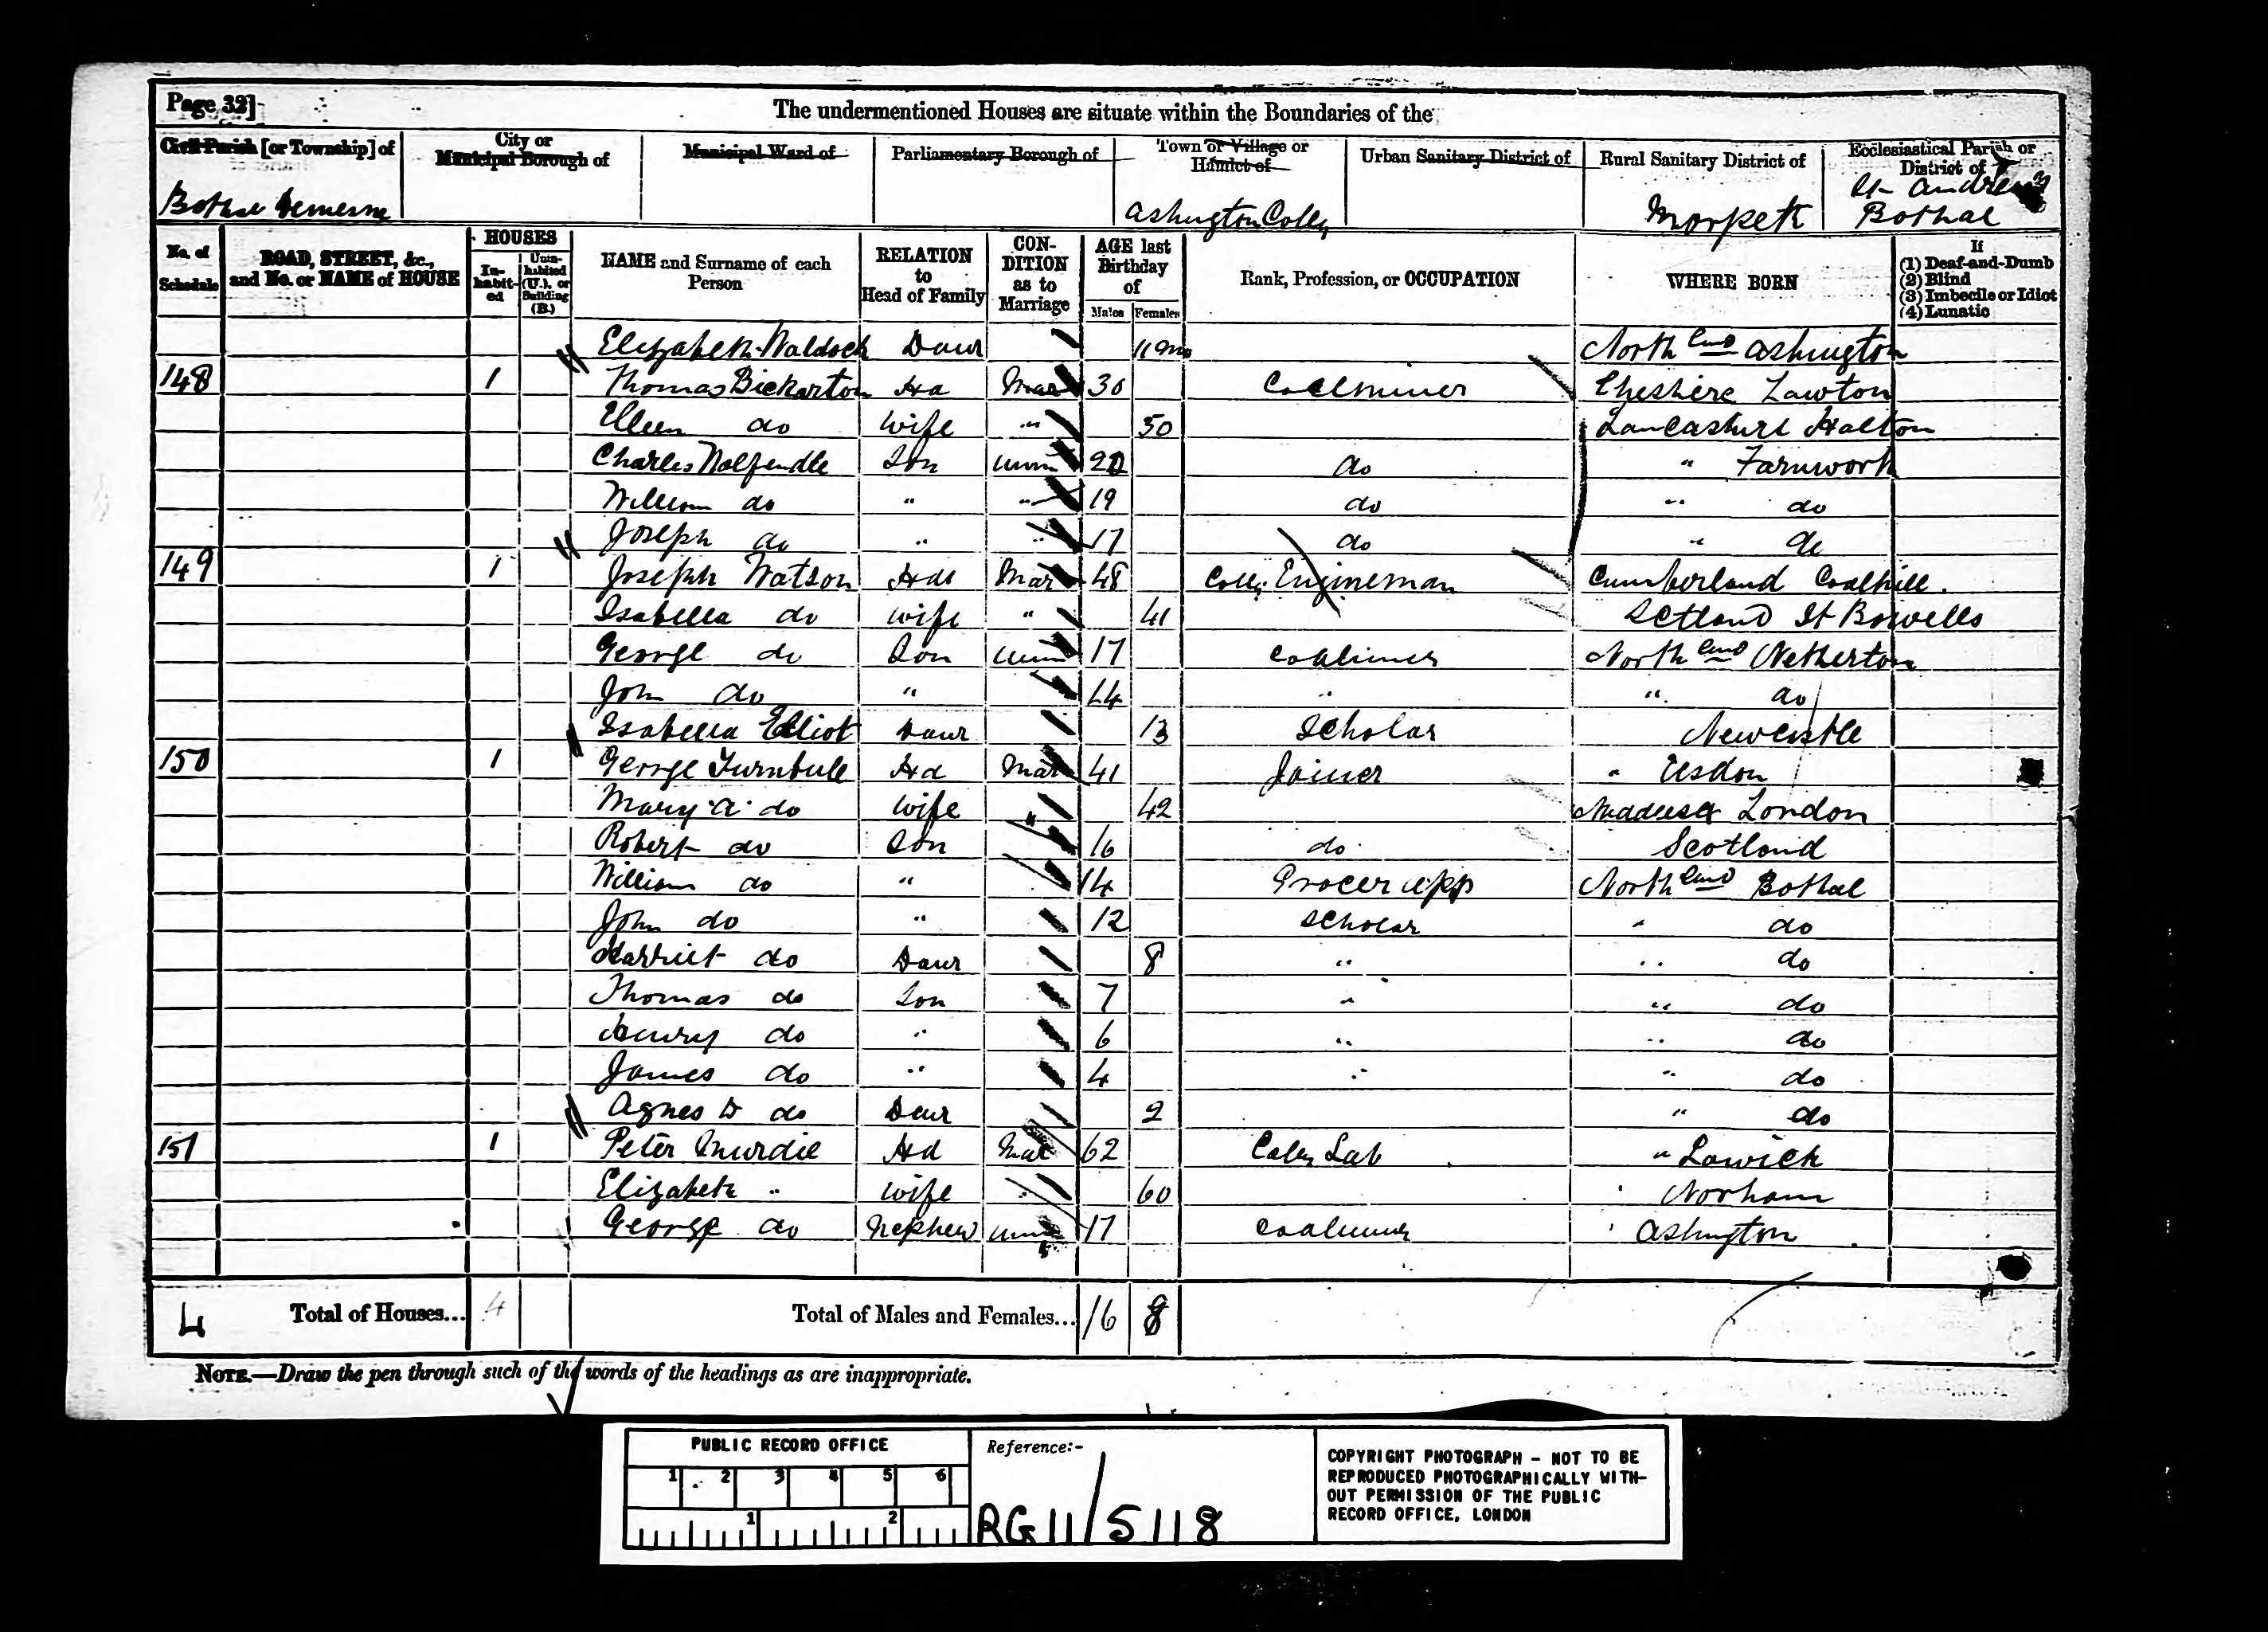 Page 32]
The undermentioned Houses are situate within the Boundaries of the
Civil Parish [or Township] of
City or Municipal Borough of
Municipal Ward of
Parliamentary Borough of
Town or Village or Hamlet of
Urban Sanitary District of
Rural Sanitary District of
Ecclesiastical Parish or District of
Bothal Demesne
Ashington Colly
Morpeth
St Andrews Bothal
No. of Schedule
ROAD, STREET, &c., and No. or NAME of HOUSE
HOUSES
In-habit-ed
Unin-habited (U.), or Building (B.)
NAME and Surname of each Person
RELATION to Head of Family
CON-DITION as to Marriage
AGE last Birthday of
Males Females
Rank, Profession, or OCCUPATION
WHERE BORN
If
(1) Deaf-and-Dumb
(2) Blind
(3) Imbecile or Idiot
(4) Lunatic
Elizabeth Waldock Daur 11 mo North land Ashington
148 1 Thomas Bickarton Hd Mar 30 Coalminer Cheshire Lawton
Ellen do Wife " 50 Lancashire Halton
Charles do Son Unm do " Farnworth
William do " " 19 do " do
Joseph do " " 17 do " do
149 1 Joseph Watson Hd Mar 48 Colly Engineman Cumberland Coalhill.
Isabella do Wife " 41 Scotland St Bowells
George do Son Unm 17 Coalminer North land Netherton
John do " 14 " " do
Isabella Elliot Daur 13 Scholar Newcastle
150 1 George Turnbull Hd Mar 41 Joiner "
Mary A do Wife " 42 London
Robert do Son 16 do Scotland
William do " 14 Grocer app North land Bothal
John do " 12 Scholar " do
Harriet do Daur 8 " " do
Thomas do Son 7 " " do
Henry do " 6 " " do
James do " 4 " " do
Agnes D do Daur 2 " do
151 1 Peter Murdie Hd Mar 62 Colly Lab " Lowick
Elizabeth " Wife " 60 " Norham
George do Nephew Unm 17 Coalminer " Ashington
4 Total of Houses... 4 Total of Males and Females... 16 8
NOTE.—Draw the pen through such of the words of the headings as are inappropriate.
PUBLIC RECORD OFFICE
1 2 3 4 5 6
1 2
Reference:-
RG 11/5118
COPYRIGHT PHOTOGRAPH - NOT TO BE
REPRODUCED PHOTOGRAPHICALLY WITH-
OUT PERMISSION OF THE PUBLIC
RECORD OFFICE, LONDON